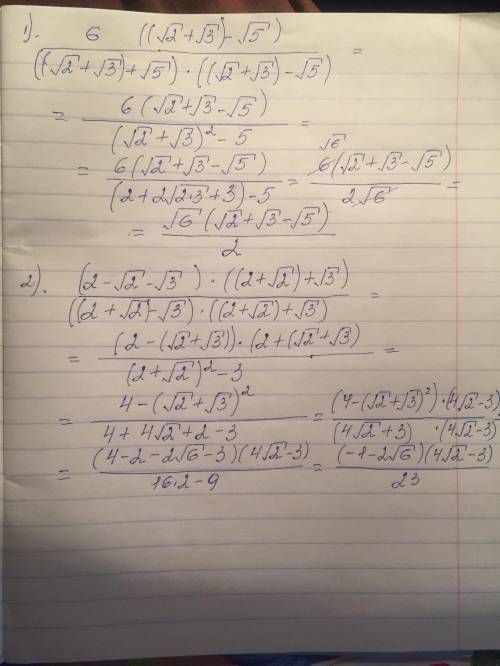 1). 6 ((√2+√3)-√5) / ((√2+√3)+√5) · ((√2+√3)-√5) =
= 6(√2+√3-√5) / (√2+√3)² - 5 =
= 6(√2+√3-√5) / (2+2√2·3+3)-5 = √6 6(√2+√3-√5) / 2√6 =
= √6 (√2+√3-√5) / 2
2). (2-√2-√3) · ((2+√2)+√3) / ((2+√2)-√3) · ((2+√2)+√3) =
= (2-(√2+√3)) · (2+(√2+√3) / (2+√2)² - 3 =
= 4-(√2+√3)² / 4+4√2+2-3 = (4-(√2+√3)²) · (4√2-3) / (4√2+3) · (4√2-3)
= (4-2-2√6-3)(4√2-3) / 16·2-9 = (-1-2√6)(4√2-3) / 23